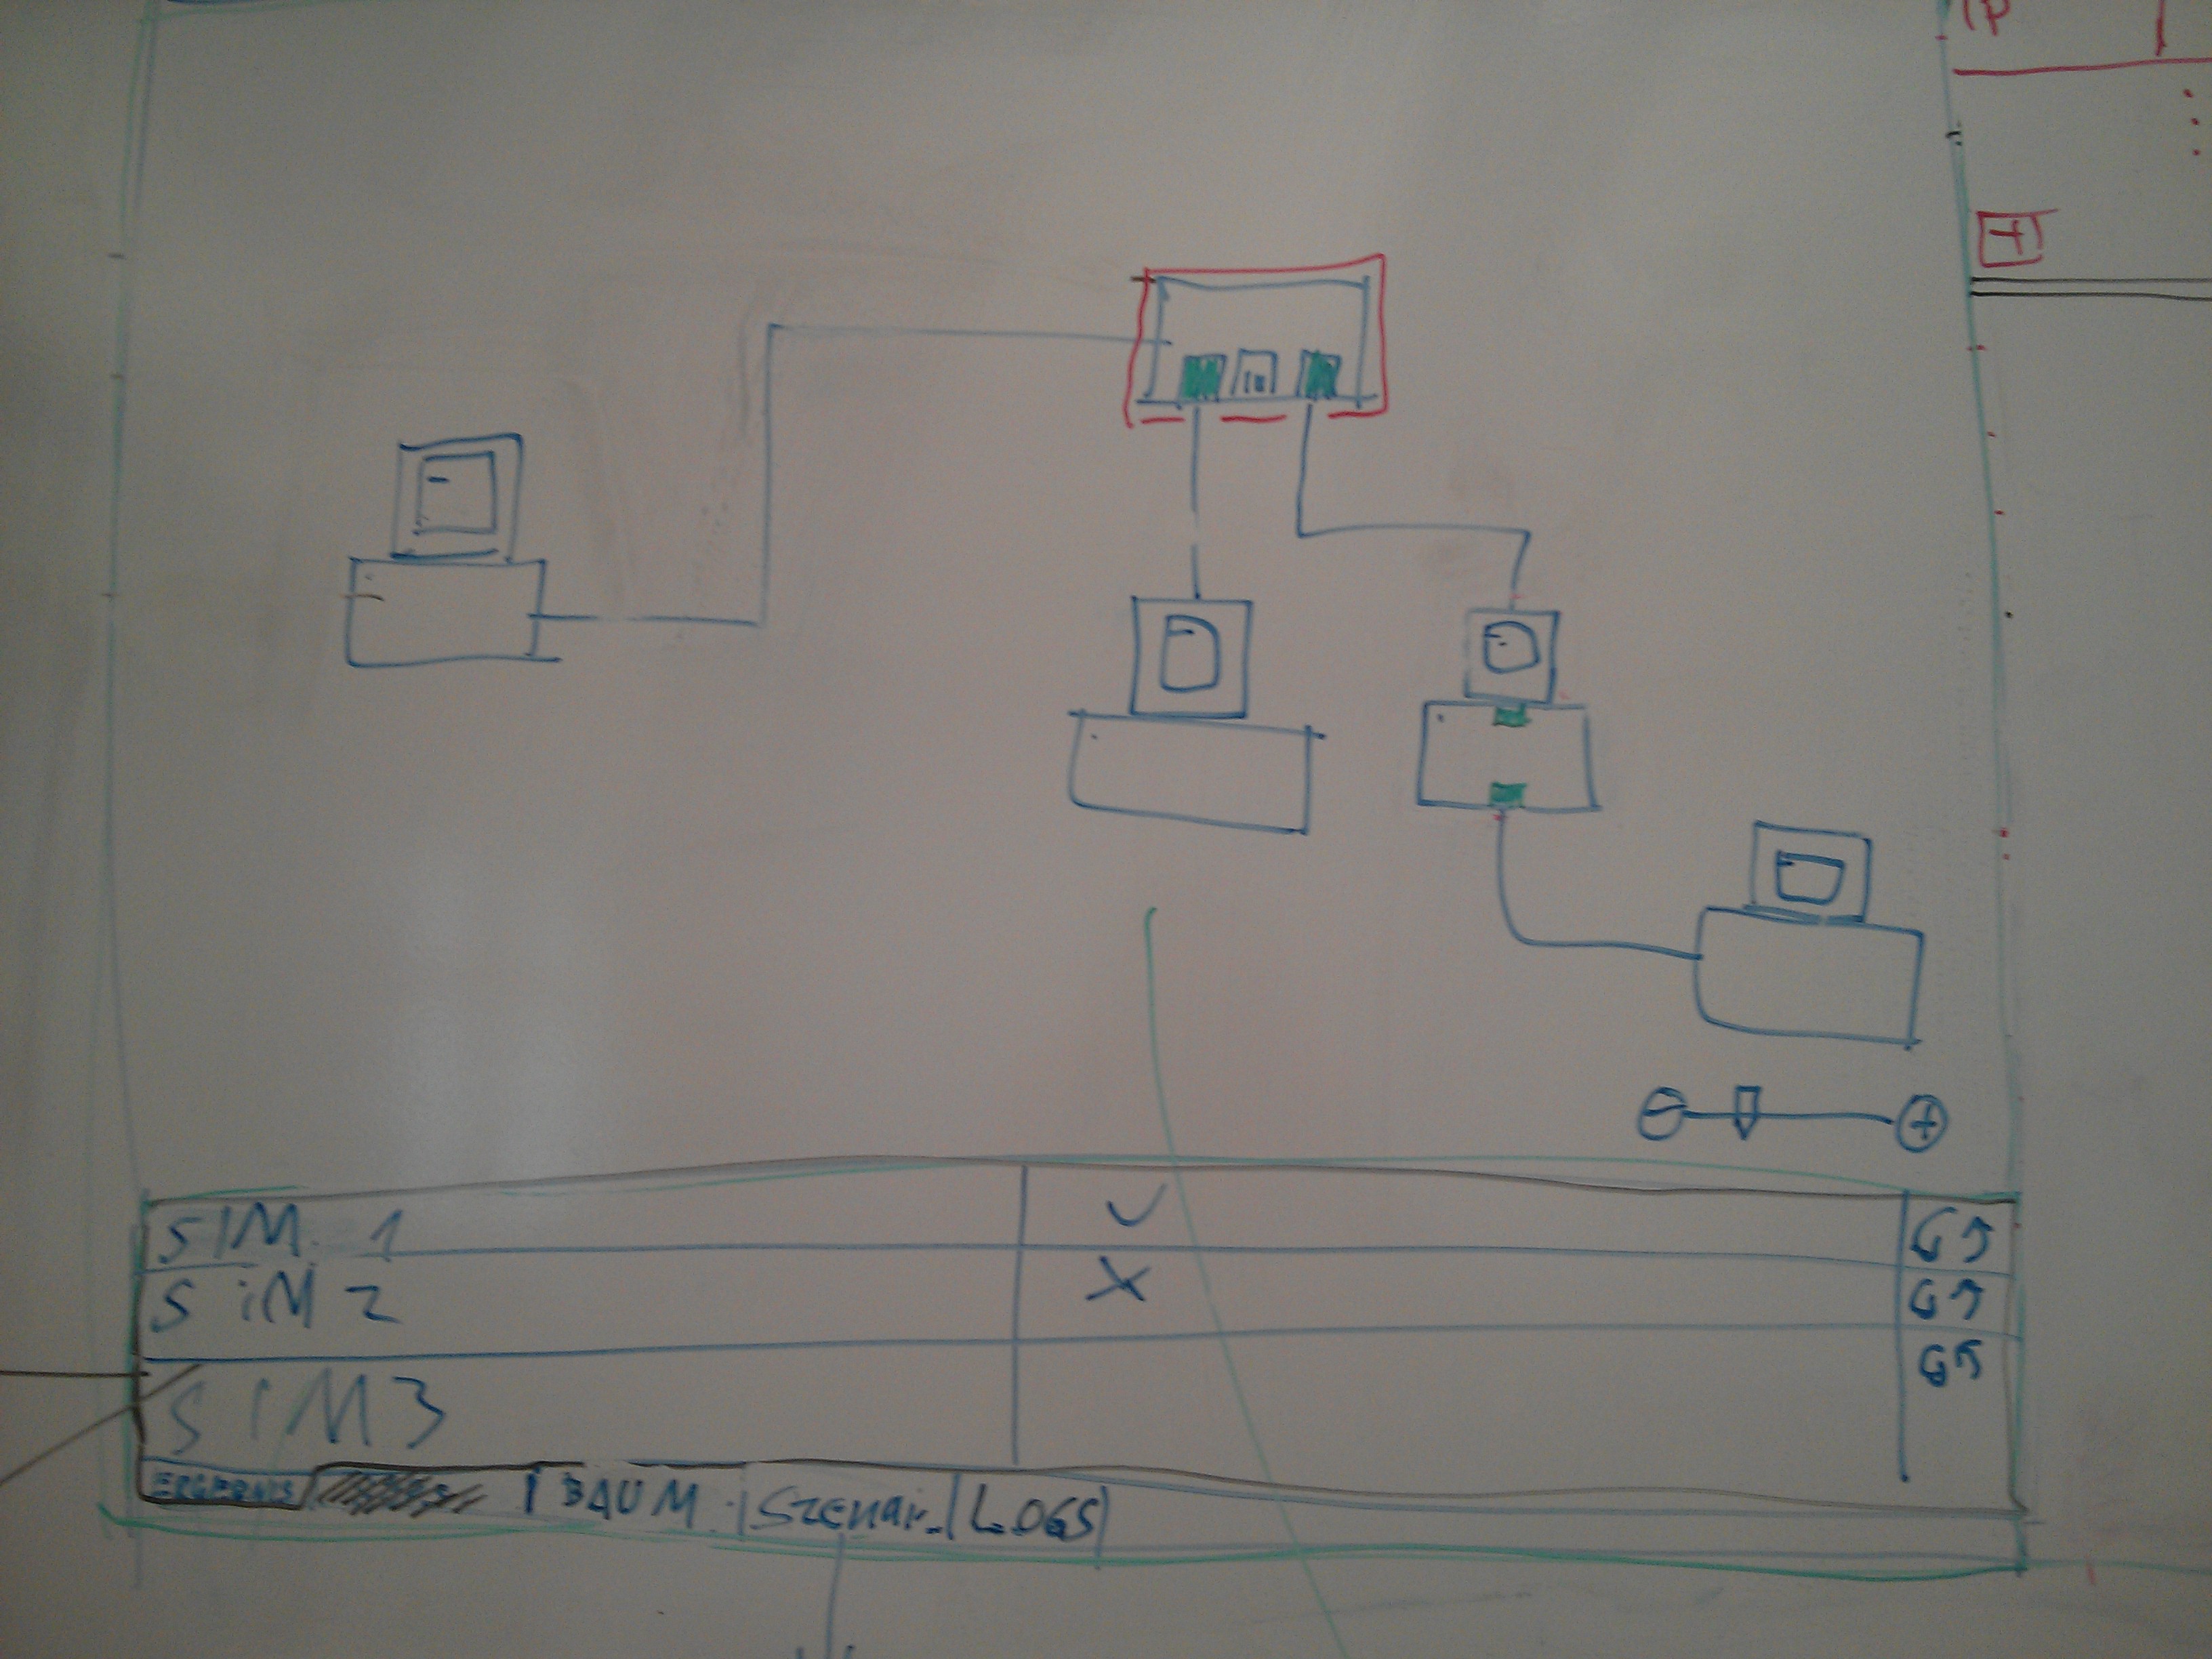 IP
SIM. 1
SiM 2
SIM3
ERGEBNIS BAUM. Szenar. LOGS